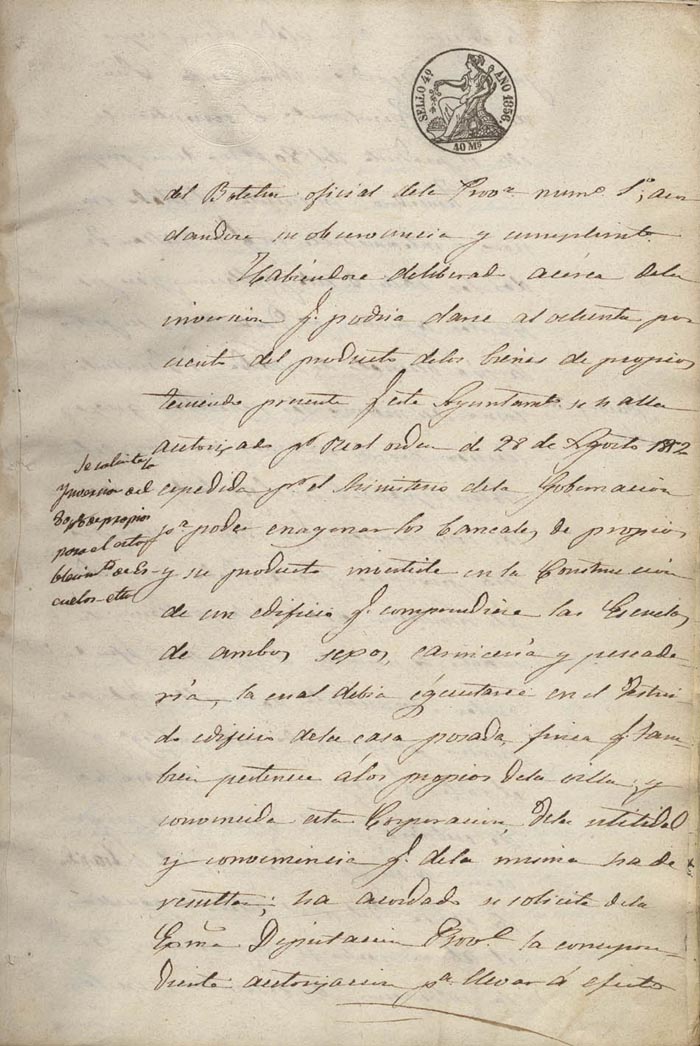 SELLO 4º AÑO 1856.
40 Mˢ
del Boletin oficial dela Provª numº 1º; acor
dandose su observancia y cumplimtº
Habiendose deliberado acérca dela
inversion q. podria darse al ochenta por
ciento del producto delos bienes de propios
teniendo presente q. este Ayuntamtº se halla
autorizado pʳ Real orden de 28 de Agosto 1852
espedida pʳ el Ministerio dela Gobernacion
pª poder enagenar los bancales de propios
y su producto invertirle en la Construccion
de un edificio q. comprendiese las Escuelas
de ambos sexos, carniceria y pescade
ria, la cual debia égecutarse en el destrui
do edificio dela casa posada, finca q. tam-
bien pertenece álos propios dela villa; y
convencida esta Corporacion, dela utilidad
y conveniencia q. dela misma ha de
resultar; ha acordado se solicite dela
Exmª Diputacion Provˡ la correspon-
diente autorizacion pª llevar á efecto
Se solicita la
Ynversion del
80 p% de propios
para el esta
blecimtº de Es
cuelas etcª